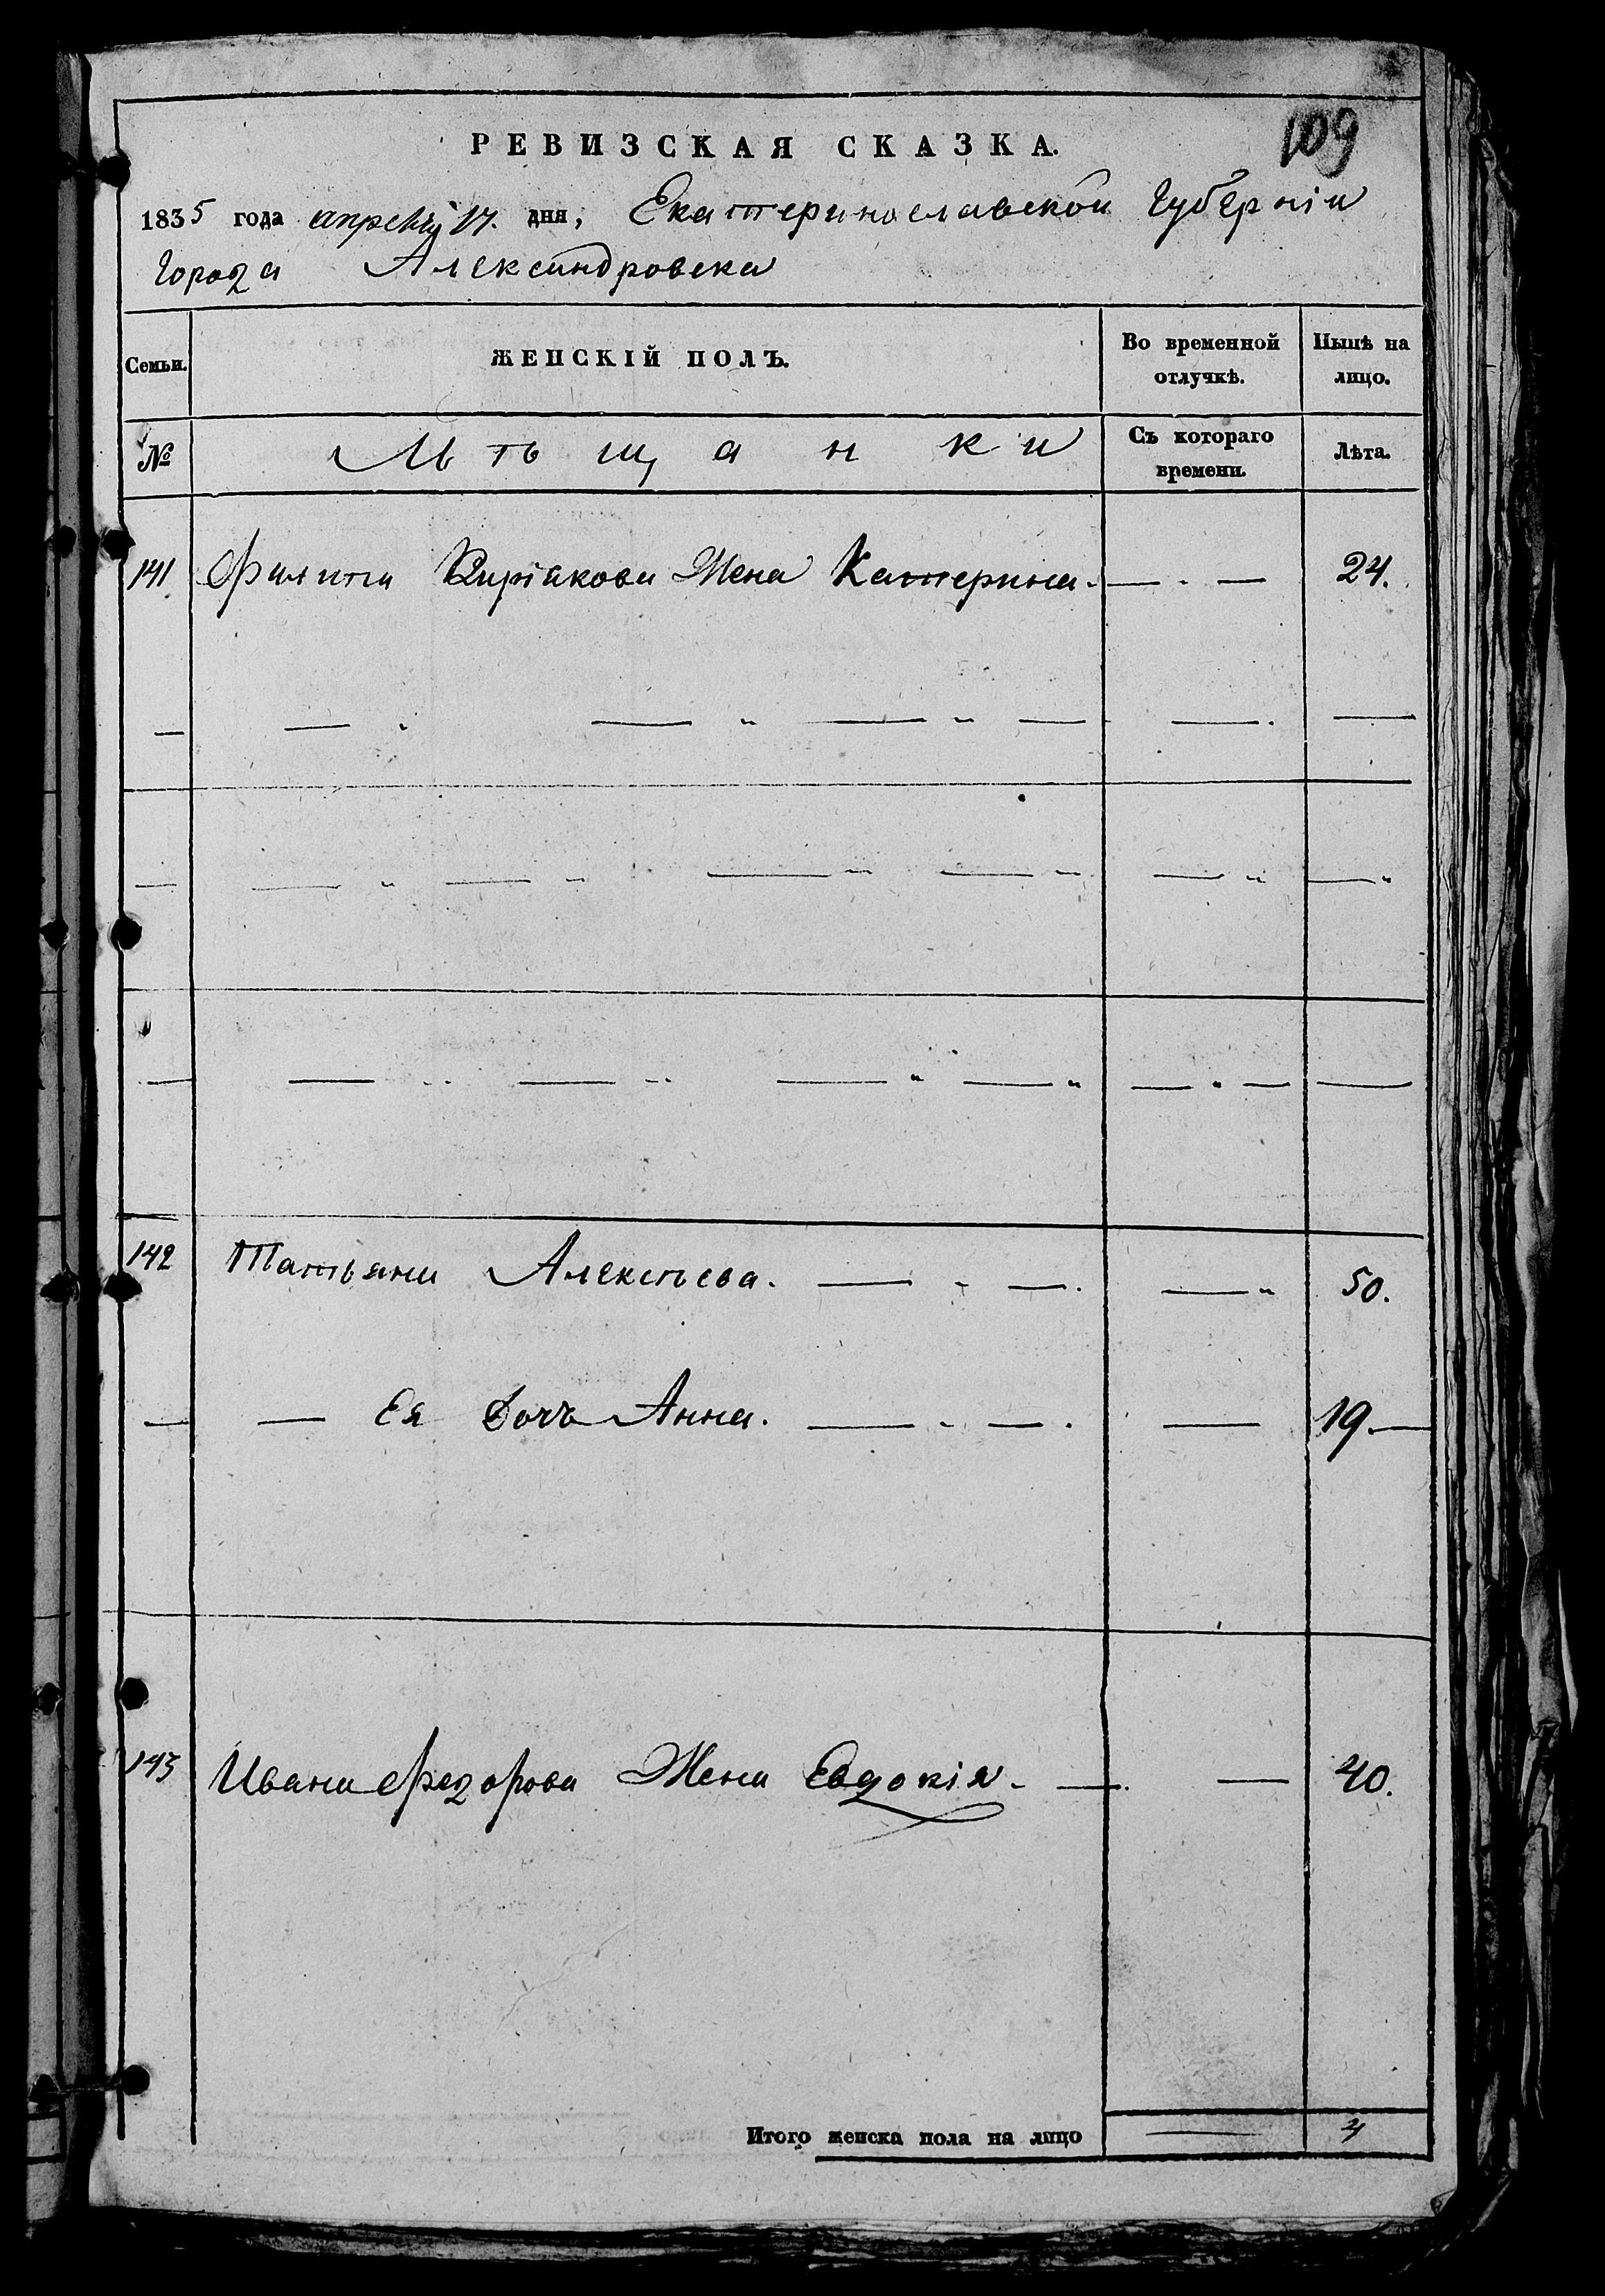 109
РЕВИЗСКАЯ СКАЗКА.
1835 года апреля 17. дня, Екатеринославской Губерніи
Города Александровска
Семьи. ЖЕНСКІЙ ПОЛЪ. Во временной отлучкѣ. Нынѣ на лицо.
№ Мѣщанки Съ котораго времени. Лѣта.
141 Филипа Киріакова Жена Катерина. — . — 24.
142 Татьяна Алексѣева. — . — . — „ 50.
— — Ея Дочь Анна. — . — . — 19. —
143 Ивана Федорова Жена Евдокія. — . — 40.
Итого женска пола на лицо — 4